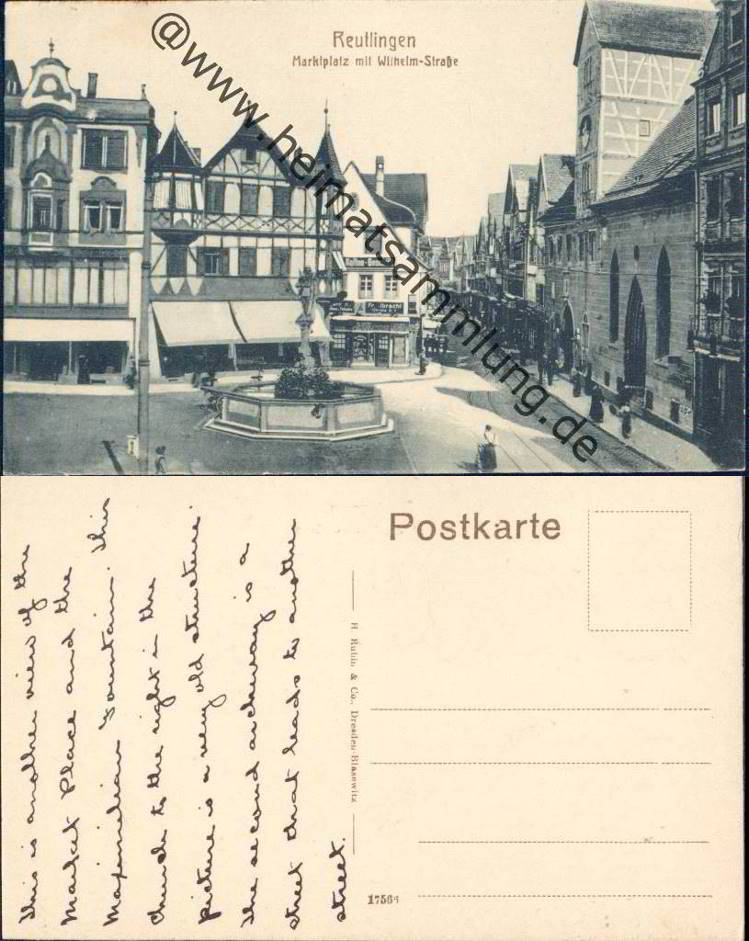 Reutlingen
Marktplatz mit Wilhelm-Straße
@www.heimatsammlung.de
This is another view of the
Market Place and the
Maximilian Fountain. This
church to the right in the
picture is a very old structure.
The second archway is a
street that leads to another
street.
Postkarte
H. Rubin & Co., Dresden-Blasewitz